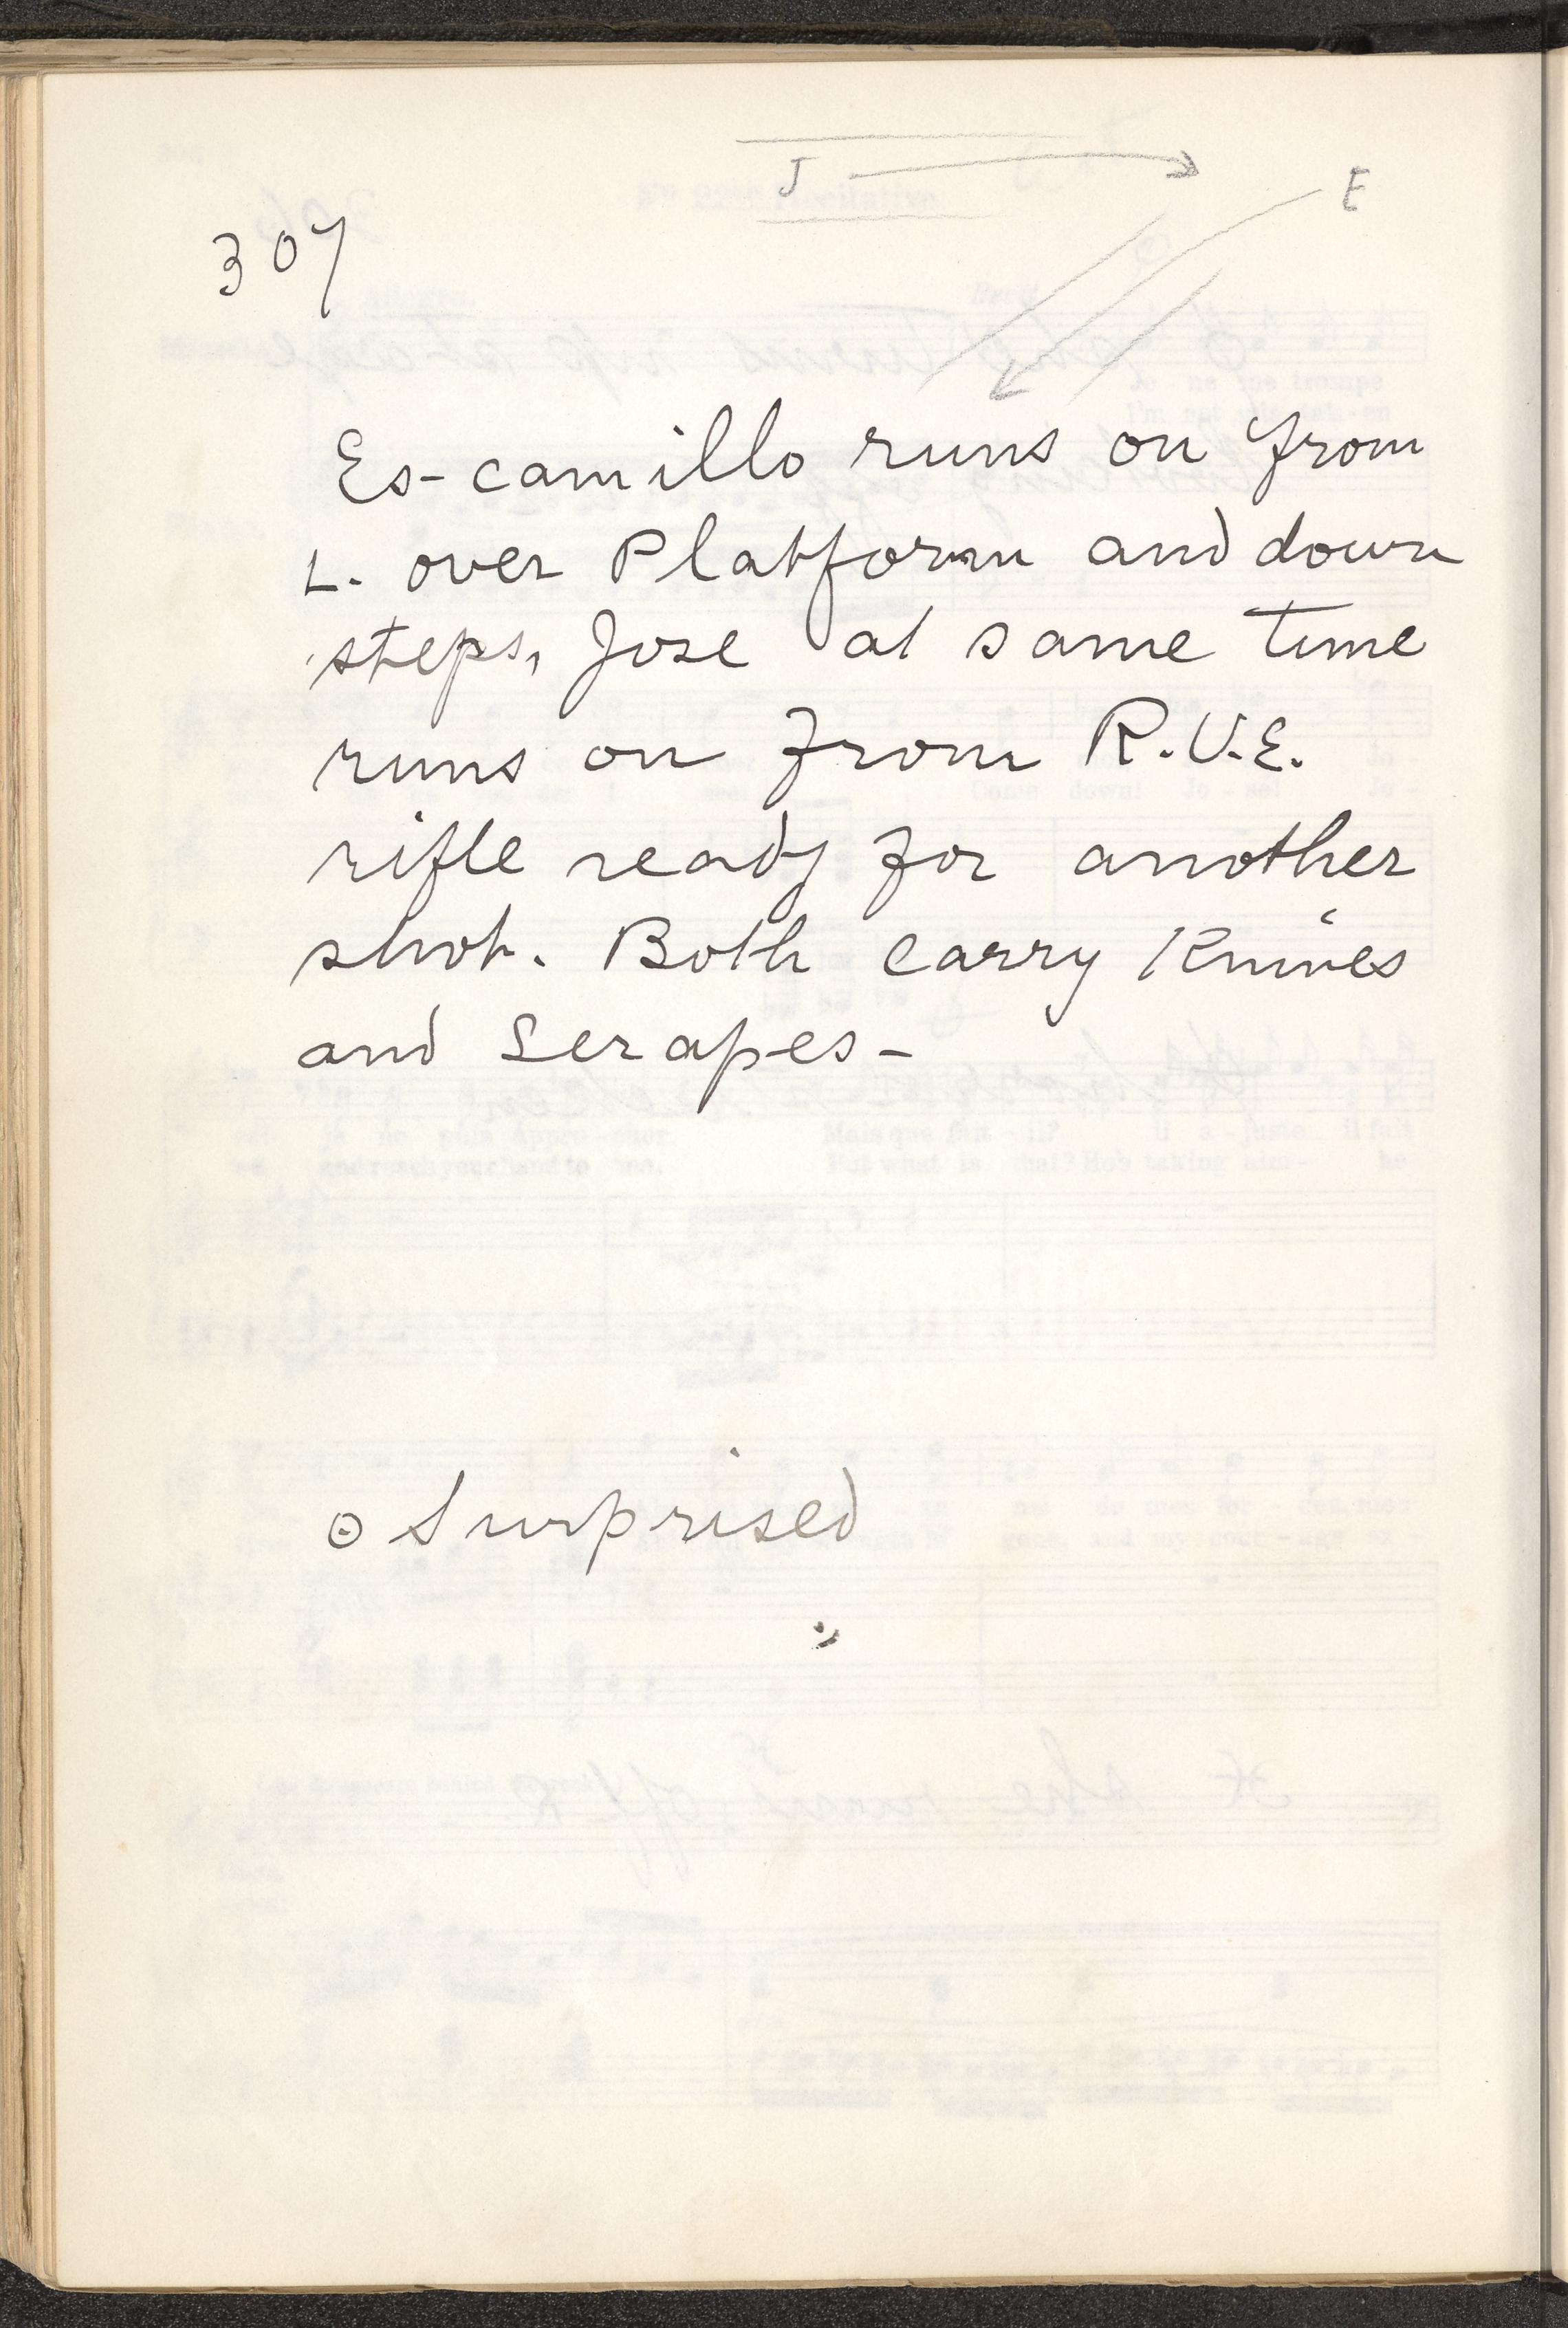 J E
307
Es-camillo runs on from
L. over Platform and down
steps, Jose at same time
runs on from R.U.E.
rifle ready for another
shot. Both carry Knives
and Serapes-
⊙ Surprised